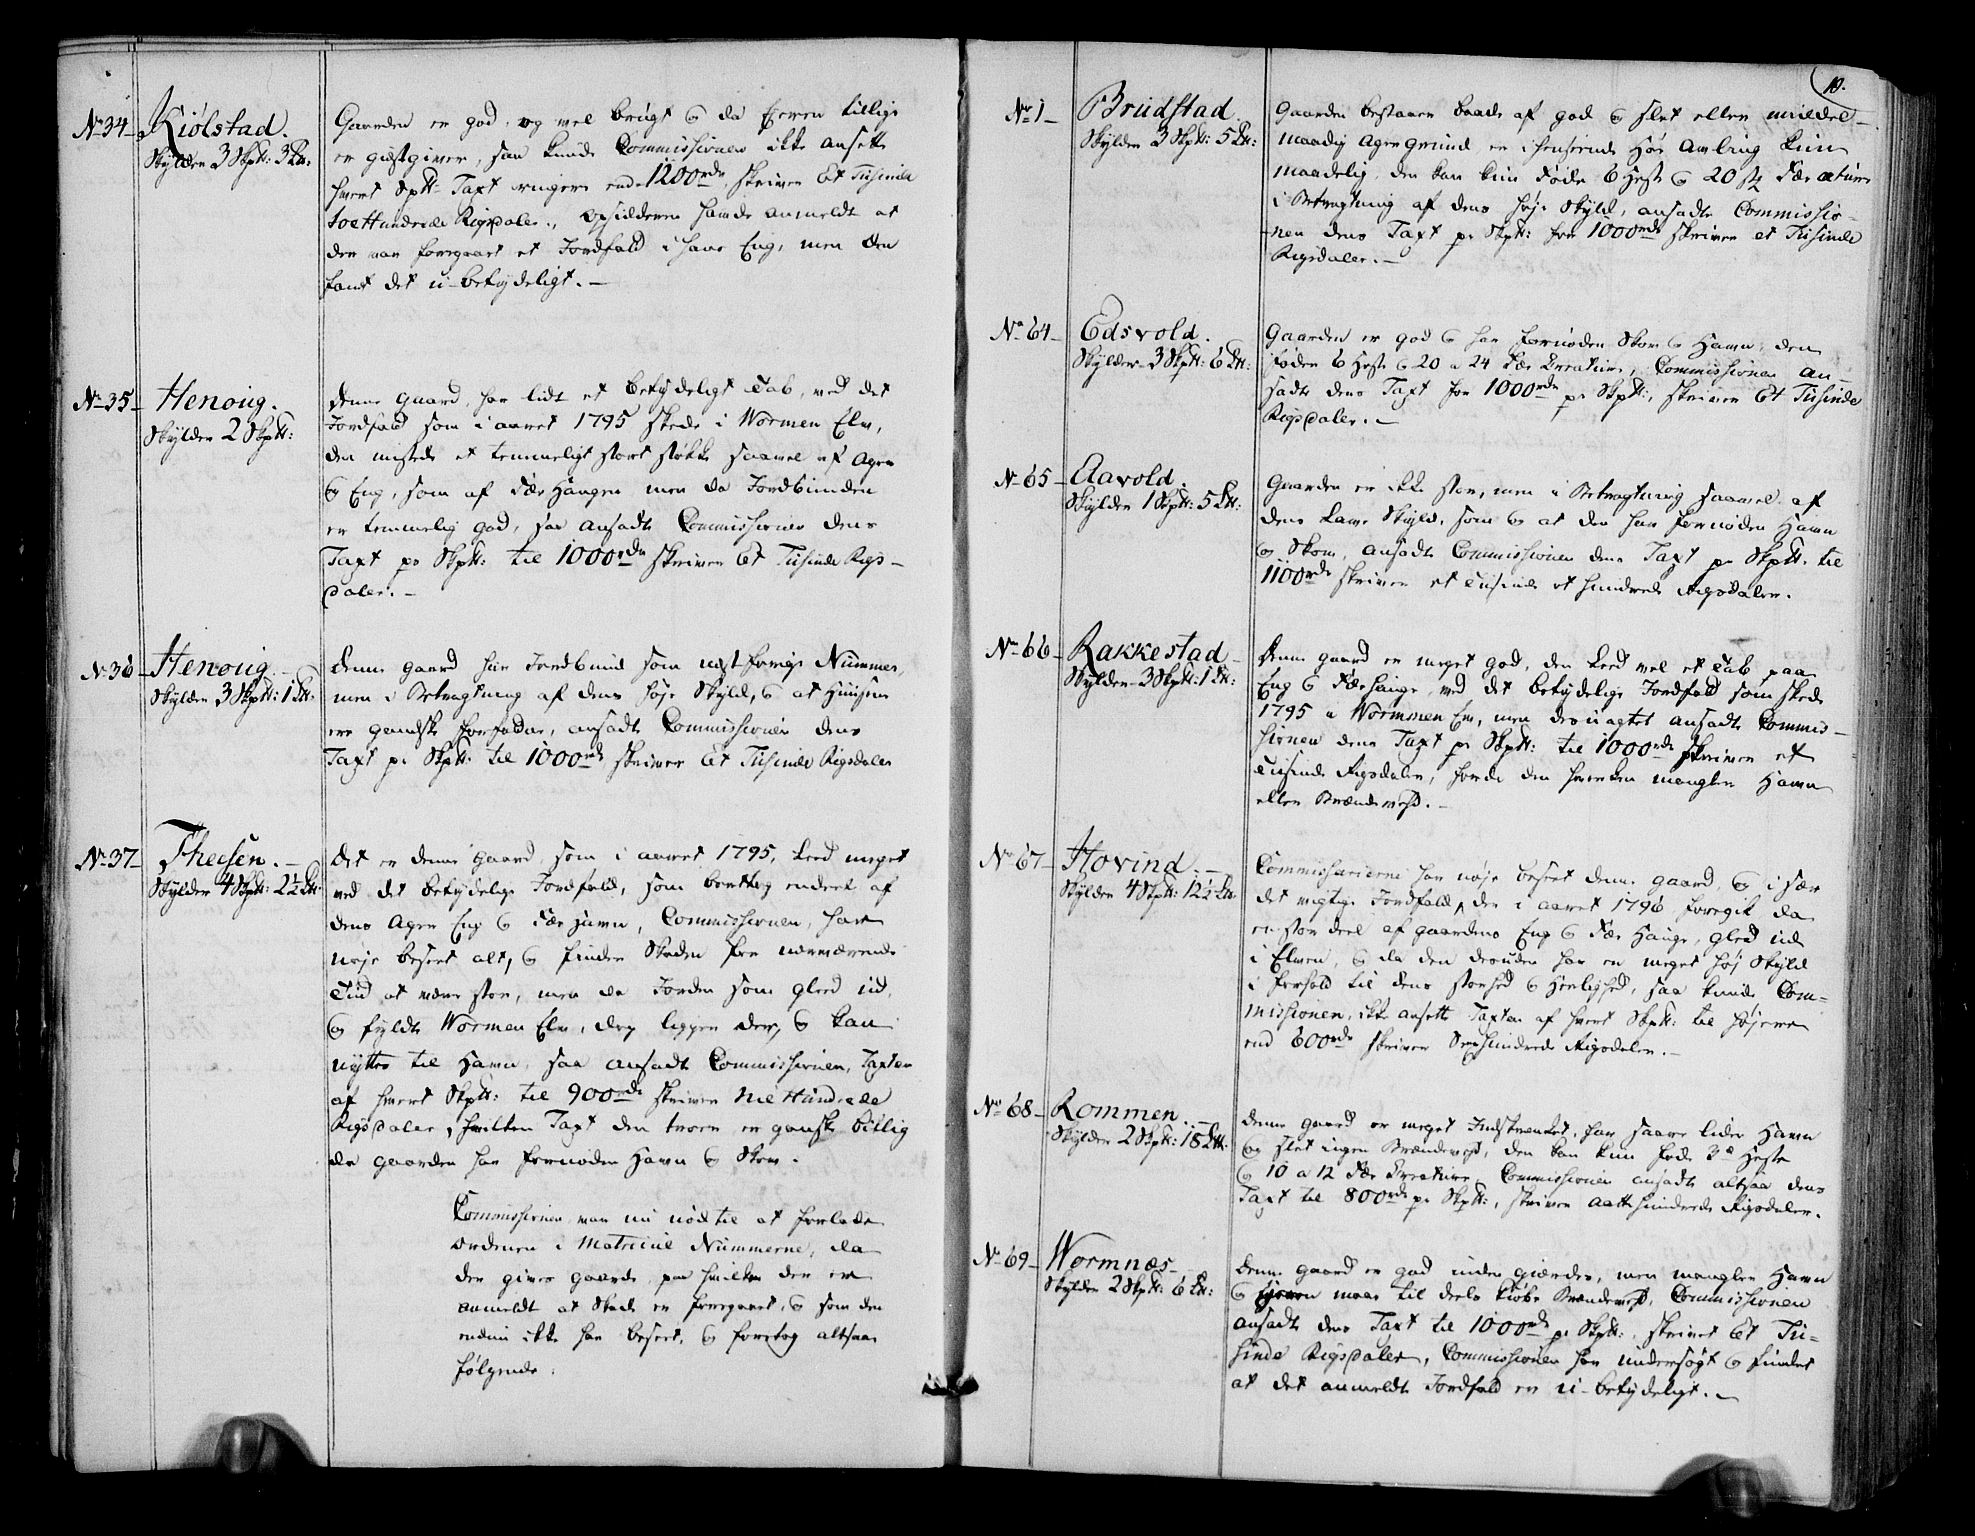 No 34 Kiölstad.
Skylder 3 Skptt: 3 Ltt:
Gaarden er god, og vel brugt og da Eieren tillige
er giæstgiver, saa kunde Commissionen ikke ansette
hvert Sptt: Taxt ringere end 1200rdr skriver Et Tusinde
toe Hundrede Rigsdaler., Opsidderen havde anmeldt at
der var foregaaet et Jordfald i hans Eng, men den
fant det u-betydeligt. —
No 35 Henoug.
Skylder 2 Skptt:
Denne gaard, har lidt et betydeligt Tab, ved det
Jordfald som i aaret 1795 skede i Wormen Elv,
den mistede et temmeligt stort støkke saavel af Ager
og Eng, som af Fæe Haugen men da Jordbunden
er temmelig god, saa ansadte Commissionen dens
Taxt pr Skptt: til 1000rdr skriver Et Tusinde Rigs-
daler. —
No 36 Henoug —
Skylder 3 Skptt: 1 Ltt:
Denne gaard har Jordbund som næst forrige Nummer,
men i Betragtning af dens høje Skyld, og at Huusene
ere gandske forfaldne, ansadte Commissionen dens
Taxt pr Skptt: til 1000rdr skriver Et Tusinde Rigsdaler
No 37 Theisen. —
Skylder 4 Skptt: 2½ Ltt:
Det er denne gaard, som i aaret 1795, Leed meget
ved det betydelige Jordfald, som borttog endeel af
dens Ager Eng og Fæe Havn, Commissionen, har
nøje beseet alt, og finder Skaden for nærværende
Tiid at være stor, men da Jorden som gleed ud,
og fyldte Wormen Elv, dog ligger der, og kan
nyttes til Havn, saa ansadte Commissionen, Taxten
af hvert Skptt: til 900rdr skriver Nie Hundrede
Rigsdaler, hvilken Taxt den troer er gansk billig
da gaarden har fornøden Havn og Skov.
Commissionen var nu nød til at forlade
ordenen i Matricul Nummerne, da
der gives gaarde, paa hvilke der er
anmeldt at Skade er foregaaet, og som den
endnu ikke har beseet, og foretog altsaa
følgende:
10.
No 1 Brudstad.
Skylder 3 Skptt: 5 Ltt:
Gaarden bestaaer baade af god og slet eller middel-
maadig Ager grund er i henseende Høe Avling kun
maadelig, den kan kun føde 6 Heste og 20 stk Fæe Creature
i Betragtning af dens høje Skyld, ansadte Commissio-
nen dens Taxt pr Skptt: for 1000rdr skriver et Tusinde
Rigsdaler. —
No 64 Edsvold.
Skylder 3 Skptt: 6 Ltt:
Gaarden er god og har fornøden Skov og Havn, den
føder 6 Heste og 20 a 24 Fæe Creature, Commissionen an
sadte dens Taxt for 1000rdr pr Skptt:, skriver Et Tusinde
Rigsdaler. —
No 65 Aavold.
Skylder 1 Skptt: 5 Ltt:
Gaarden er ikke stor, men i Betragtning saavel af
dens Lave Skyld, som og at den har fornøden Havn
og Skov, ansadte Commissionen dens Taxt pr Skptt: til
1100rdr skriver et Tusinde et hundrede Rigsdaler.
No 66 Rakkestad —
Skylder 3 Skptt: 1 Ltt:
Denne gaard er meget god, den Leed vel et Tab paa
Eng og Fæe hauge, ved det betydelige Jordfald som skede
1795 i Wormen Elv, men desuagtet ansadte Commis-
sionen dens Taxt pr Skptt: til 1000rdr skriver et
Tusinde Rigsdaler, fordi den hverken mangler Havn
eller Brændeved. —
No 67 Hovind. —
Skylder 4 Skptt: 12½ Ltt:
Commissarierne har nøje beseet denne gaard, og i sær
det vigtige Jordfald, der i aaret 1796 foregik da
en stor deel af gaardens Eng og Fæe Hauge, gleed ud
i Elven, og da den desuden har en meget høj Skyld
i forhold til dens storhed og Herlighed, saa kunde Com-
missionen, ikke ansette Taxten af hvert Skptt: til højere
end 600rdr skriver Sexhundrede Rigsdaler. —
No 68 Rommen. —
Skylder 2 Skptt: 18 Ltt:
Denne gaard er meget Indskrænket, har saare lidet Havn
og slet ingen Brændeved, den kan kun føde 3de Heste
og 10 a 12 Fæe Creature, Commissionen ansadte altsaa dens
Taxt til 800rdr pr Skptt:, skriver aatte hundrede Rigsdaler.
No 69 Wormnæs —
Skylder 2 Skptt: 6 Ltt:
Denne gaard er god inden giærdes, men mangler Havn
og maae til deels kiøbe Brændeved, Commissionen
ansadte dens Taxt til 1000rdr pr Skptt:, skrivet Et Tu-
sinde Rigsdaler, Commissionen har undersøgt og fundet
at det anmeldte Jordfald er u-betydeligt. —